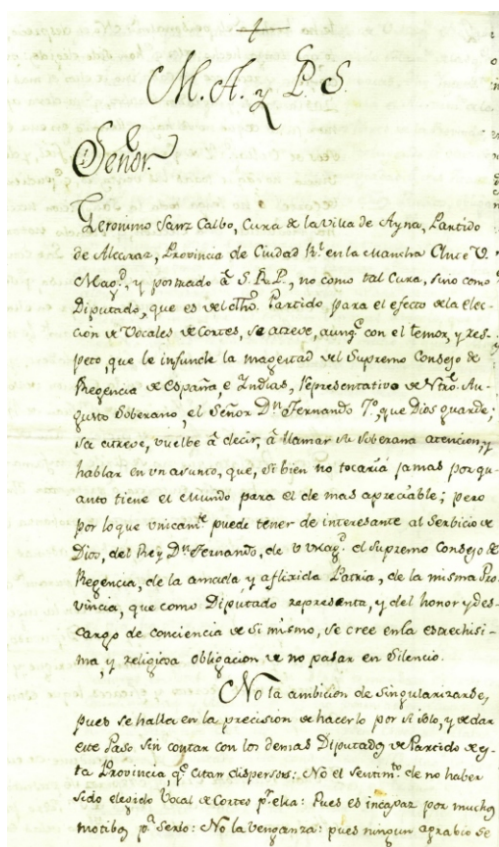 M. A. y P. S.
Señor.
Geronimo Sanz Calbo, Cura de la Villa de Ayna, Partido
de Alcaraz, Provincia de Ciudad Rl. en la Mancha Ante V.
Magd., y postrado á S. R. P., no como tal Cura, sino como
Diputado, que es del dho. Partido, para el efecto de la elec-
cion de Vocales de Cortes, se atreve, aunqe. con el temor, y res-
peto, que le infunde la magestad del Supremo Consejo de
Regencia de España, e Indias, representativo de Ntro. Au-
gusto Soberano, el Señor Dn. Fernando 7o., que Dios guarde;
se atreve, vuelbe á decir, á llamar su soberana atencion, y
hablar en un asunto, que, si bien no tocaría jamas por qu-
anto tiene el Mundo para el de mas apreciable; pero
por lo que unicamte. puede tener de interesante al Serbicio de
Dios, del Rey Dn. Fernando, de V. Magd. el Supremo Consejo de
Regencia, de la amada, y aflixida Patria, de la misma Pro-
vincia, que como Diputado representa, y del honor y des-
cargo de conciencia de si mismo, se cree en la estrechisi-
ma, y religiosa obligacion de no pasar en Silencio.
No la ambicion de singularizarse,
pues se halla en la precision de hacerlo por si solo, y de dar
este Paso sin contar con los demas Diputados de Partido de es-
ta Provincia, qe. estan dispersos: No el sentimto. de no haber
sido elegido Vocal de Cortes pr. ella: Pues es incapaz por muchos
motibos pa. serlo: No la venganza: pues ningun agrabio se